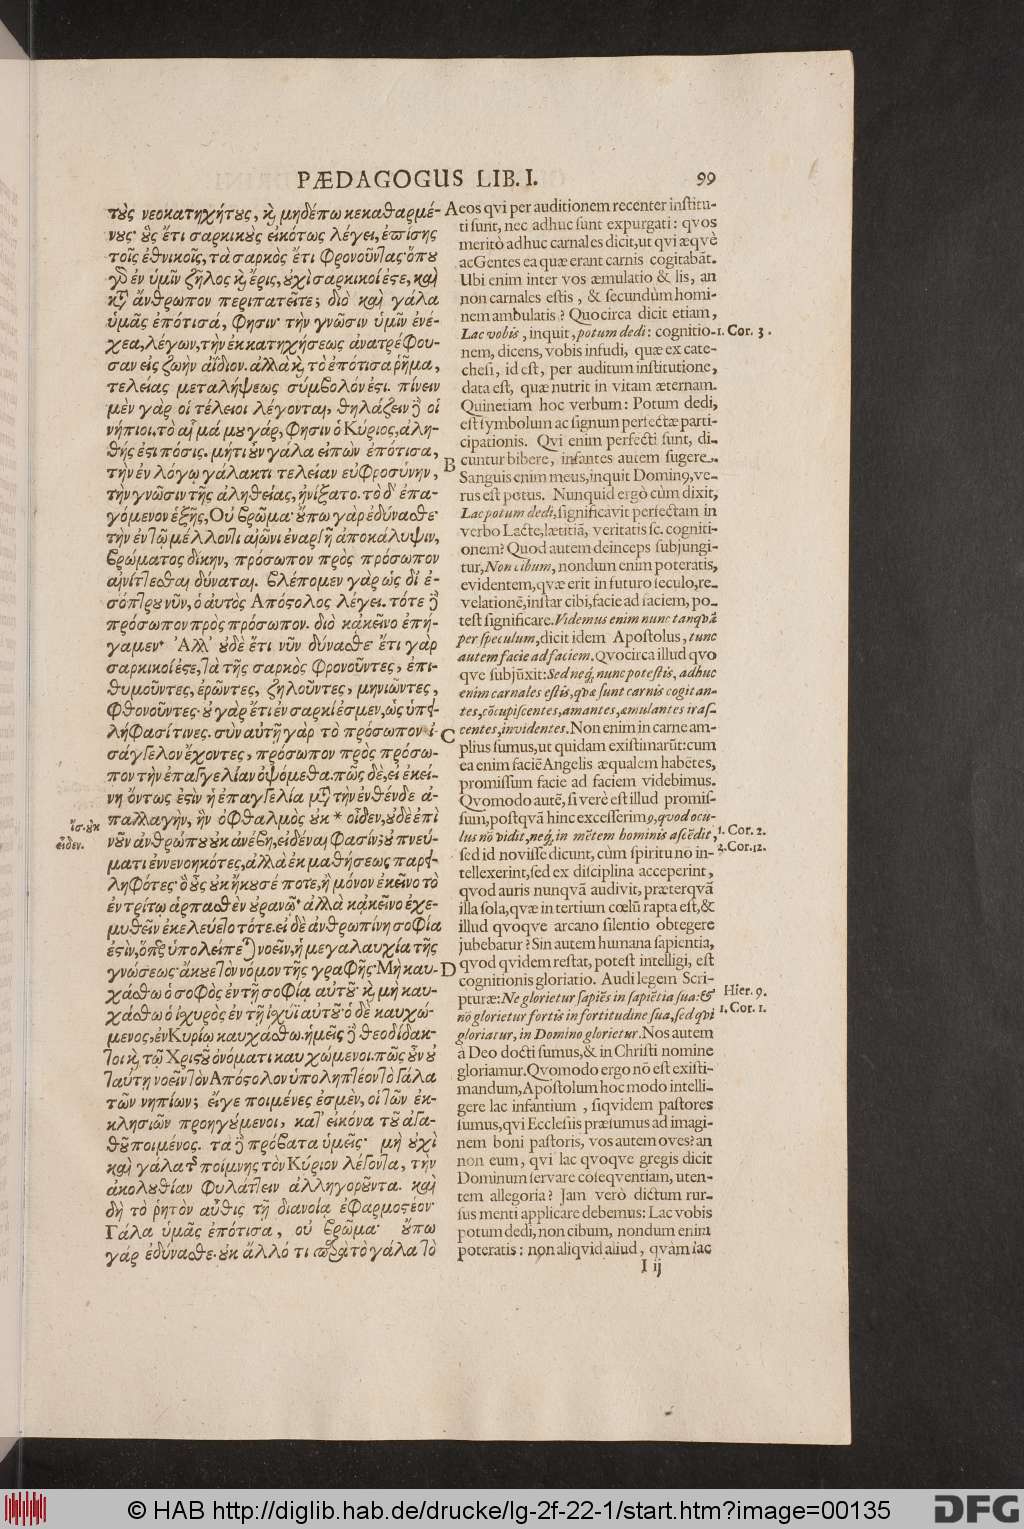 PÆDAGOGUS LIB. I.
99
τοὺς νεοκατηχήτους, καὶ μηδέπω κεκαθαρμέ-
νους· οὓς ἔτι σαρκικοὺς εἰκότως λέγει, ἐπίσης
τοῖς ἐθνικοῖς, τὰ σαρκὸς ἔτι φρονοῦντας· ὅπου
γὰρ ἐν ὑμῖν ζῆλος καὶ ἔρις, οὐχὶ σαρκικοί ἐστε, καὶ
κατὰ ἄνθρωπον περιπατεῖτε; διὸ καὶ γάλα
ὑμᾶς ἐπότισά, φησιν· τὴν γνῶσιν ὑμῖν ἐνέ-
χεα, λέγων, τὴν ἐκ κατηχήσεως ἀνατρέφου-
σαν εἰς ζωὴν ἀΐδιον. ἀλλὰ καὶ τὸ ἐπότισα ῥῆμα,
τελείας μεταλήψεως σύμβολόν ἐστι. πίνειν
μὲν γὰρ οἱ τέλειοι λέγονται, θηλάζειν δὲ οἱ
νήπιοι. τὸ αἷμά μου γάρ, φησιν ὁ Κύριος, ἀλη-
θής ἐστι πόσις. μήτι οὖν γάλα εἰπὼν ἐπότισα,
τὴν ἐν λόγῳ γάλακτι τελείαν εὐφροσύνην,
τὴν γνῶσιν τῆς ἀληθείας, ᾐνίξατο. τὸ δ' ἐπα-
γόμενον ἑξῆς, Οὐ βρῶμα· οὔπω γὰρ ἐδύνασθε·
τὴν ἐν τῷ μέλλοντι αἰῶνι ἐναργῆ ἀποκάλυψιν,
βρώματος δίκην, πρόσωπον πρὸς πρόσωπον
αἰνίττεσθαι δύναται. βλέπομεν γὰρ ὡς δι' ἐ-
σόπτρου νῦν, ὁ αὐτὸς Ἀπόστολος λέγει. τότε δὲ
πρόσωπον πρὸς πρόσωπον. διὸ κἀκεῖνο ἐπή-
γαμεν· Ἀλλ' οὐδὲ ἔτι νῦν δύνασθε· ἔτι γὰρ
σαρκικοί ἐστε, τὰ τῆς σαρκὸς φρονοῦντες, ἐπι-
θυμοῦντες, ἐρῶντες, ζηλοῦντες, μηνιῶντες,
φθονοῦντες· οὐ γὰρ ἔτι ἐν σαρκί ἐσμεν, ὡς ὑπει-
λήφασί τινες. σὺν αὐτῇ γὰρ τὸ πρόσωπον ἰ-
σάγγελον ἔχοντες, πρόσωπον πρὸς πρόσω-
πον τὴν ἐπαγγελίαν ὀψόμεθα. πῶς δὲ, εἰ ἐκεί-
νη ὄντως ἐστὶν ἡ ἐπαγγελία μετὰ τὴν ἐνθένδε ἀ-
παλλαγὴν, ἣν ὀφθαλμὸς οὐκ * οἶδεν, οὐδὲ ἐπὶ
νοῦν ἀνθρώπου οὐκ ἀνέβη, εἰδέναι φασίν; οὐ πνεύ-
ματι ἐννενοηκότες, ἀλλὰ ἐκ μαθήσεως παρει-
ληφότες· ὃ οὖς οὐκ ἤκουσέ ποτε, ἢ μόνον ἐκεῖνο τὸ
ἐν τρίτῳ ἁρπασθὲν οὐρανῷ· ἀλλὰ κἀκεῖνο ἐχε-
μυθεῖν ἐκελεύετο τότε. εἰ δὲ ἀνθρωπίνη σοφία
ἐστὶν, ὅπερ ὑπολείπεται νοεῖν, ἡ μεγαλαυχία τῆς
γνώσεως· ἄκουε τὸν νόμον τῆς γραφῆς· Μὴ καυ-
χάσθω ὁ σοφὸς ἐν τῇ σοφίᾳ αὐτοῦ· καὶ μὴ καυ-
χάσθω ὁ ἰσχυρὸς ἐν τῇ ἰσχύϊ αὐτοῦ· ὁ δὲ καυχώ-
μενος, ἐν Κυρίῳ καυχάσθω. ἡμεῖς δὲ θεοδίδακ-
τοι καὶ τῷ Χριστοῦ ὀνόματι καυχώμενοι. πῶς οὖν οὐ
ταύτῃ νοεῖν τὸν Ἀπόστολον ὑποληπτέον τὸ γάλα
τῶν νηπίων; εἴγε ποιμένες ἐσμὲν, οἱ τῶν ἐκ-
κλησιῶν προηγούμενοι, κατ' εἰκόνα τοῦ ἀγα-
θοῦ ποιμένος. τὰ δὲ πρόβατα ὑμεῖς· μὴ οὐχὶ
καὶ γάλα τῆς ποίμνης τὸν Κύριον λέγοντα, τὴν
ἀκολουθίαν φυλάττειν ἀλληγοροῦντα. καὶ
δὴ τὸ ῥητὸν αὖθις τῇ διανοίᾳ ἐφαρμοστέον·
Γάλα ὑμᾶς ἐπότισα, οὐ βρῶμα· οὔπω
γὰρ ἐδύνασθε· οὐκ ἄλλό τι παρὰ τὸ γάλα τὸ
ἴσ. οὐκ
εἶδεν.
A eos qvi per auditionem recenter institu-
ti sunt, nec adhuc sunt expurgati: qvos
meritò adhuc carnales dicit, ut qvi æqvè
ac Gentes ea quæ erant carnis cogitabãt.
Ubi enim inter vos æmulatio & lis, an
non carnales estis, & secundùm homi-
nem ambulatis? Quocirca dicit etiam,
Lac vobis, inquit, potum dedi: cognitio-
nem, dicens, vobis infudi, quæ ex cate-
chesi, id est, per auditum institutione,
data est, quæ nutrit in vitam æternam.
Quinetiam hoc verbum: Potum dedi,
est symbolum ac signum perfectæ parti-
cipationis. Qvi enim perfecti sunt, di-
B cuntur bibere, infantes autem sugere.
Sanguis enim meus, inquit Domin9, ve-
rus est potus. Nunquid ergò cùm dixit,
Lac potum dedi, significavit perfectam in
verbo Lacte, lætitiã, veritatis sc. cogniti-
onem? Quod autem deinceps subjungi-
tur, Non cibum, nondum enim poteratis,
evidentem, qvæ erit in futuro seculo, re-
velationẽ, instar cibi, facie ad faciem, po-
test significare. Videmus enim nunc tanqvã
per speculum, dicit idem Apostolus, tunc
autem facie ad faciem. Qvocirca illud qvo
qve subjũxit: Sed neq; nunc potestis, adhuc
enim carnales estis, qvæ sunt carnis cogitan-
tes, cõcupiscentes, amantes, æmulantes iras-
C centes, invidentes. Non enim in carne am-
plius sumus, ut quidam existimarũt: cum
ea enim faciẽ Angelis æqualem habẽtes,
promissum facie ad faciem videbimus.
Qvomodo autẽ, si verè est illud promis-
sum, postqvã hinc excesserim9, quod ocu-
lus nõ vidit, neq; in mẽtem hominis ascẽdit,
sed id novisse dicunt, cùm spiritu nõ in-
tellexerint, sed ex disciplina acceperint,
qvod auris nunqvã audivit, præterqvã
illa sola, qvæ in tertium cœlũ rapta est, &
illud qvoqve arcano silentio obtegere
jubebatur? Sin autem humana sapientia,
D qvod qvidem restat, potest intelligi, est
cognitionis gloriatio. Audi legem Scri-
pturæ: Ne glorietur sapiẽs in sapiẽtia sua: &
nõ glorietur fortis in fortitudine sua, sed qvi
gloriatur, in Domino glorietur. Nos autem
à Deo docti sumus, & in Christi nomine
gloriamur. Qvomodo ergo nõ est existi-
mandum, Apostolum hoc modo intelli-
gere lac infantium, siqvidem pastores
sumus, qvi Ecclesiis præsumus ad imagi-
nem boni pastoris, vos autem oves? an
non eum, qvi lac qvoqve gregis dicit
Dominum servare cõseqventiam, uten-
tem allegoria? Jam verò dictum rur-
sus menti applicare debemus: Lac vobis
potum dedi, non cibum, nondum enim
poteratis: non aliqvid aliud, qvàm lac
1. Cor. 3.
1. Cor. 2.
2. Cor. 12.
Hier. 9.
1. Cor. 1.
I ij
© HAB http://diglib.hab.de/drucke/lg-2f-22-1/start.htm?image=00135
DFG